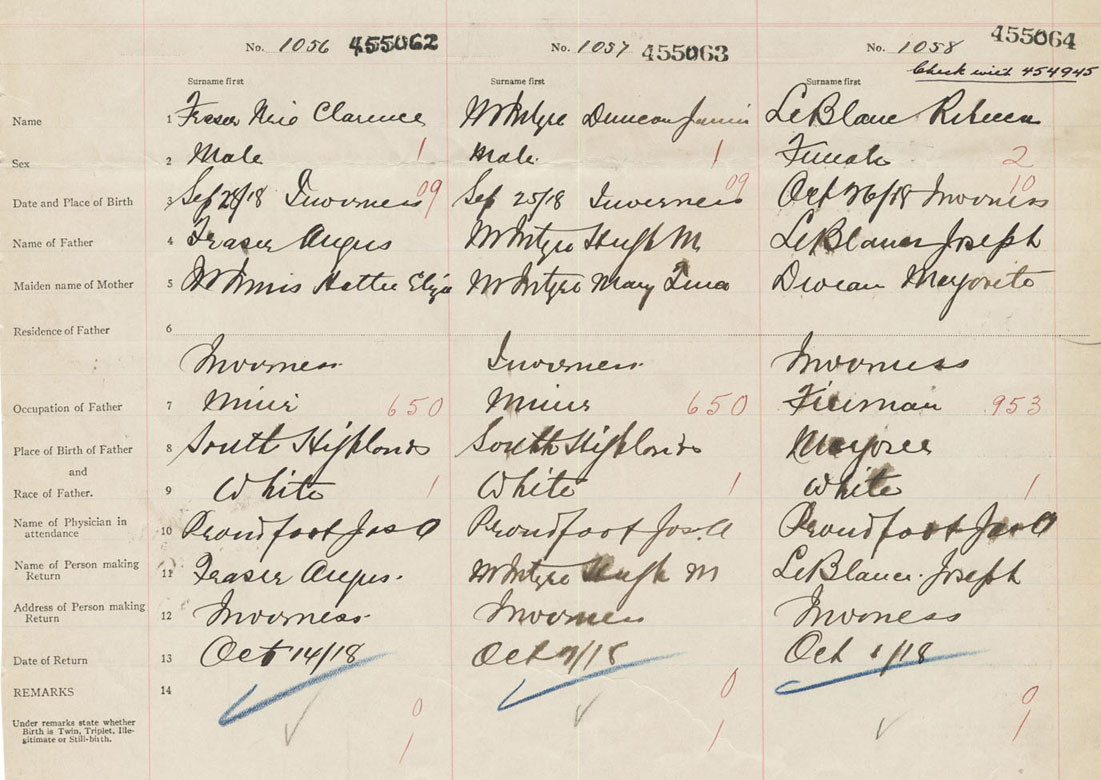 No. 1056 455062 No. 1057 455063 No. 1058 455064
Check with 454945
Surname first Surname first Surname first
Name 1 Fraser Clarence McIntyre Duncan LeBlanc Rebecca
Sex 2 Male 1 Male 1 Female 2
Date and Place of Birth 3 Sep 28/18 Inverness 09 Sep 25/18 Inverness 09 Oct 26/18 Inverness 10
Name of Father 4 Fraser Angus McIntyre Hugh M LeBlanc Joseph
Maiden name of Mother 5 Hattie Eliza McIntyre Mary
Residence of Father 6
Inverness Inverness Inverness
Occupation of Father 7 Miner 650 Miner 650 Fireman 953
Place of Birth of Father 8 South Highlands South Highlands Margaree
and
Race of Father. 9 White 1 White 1 White 1
Name of Physician in
attendance 10 Proudfoot Jas A Proudfoot Jas. A Proudfoot Jas A
Name of Person making
Return 11 Fraser Angus. McIntyre Hugh M LeBlanc Joseph
Address of Person making
Return 12 Inverness Inverness Inverness
Date of Return 13 Oct 14/18 Oct /18 Oct /18
REMARKS 14
Under remarks state whether
Birth is Twin, Triplet, Ille-
gitimate or Still-birth.
0 0 0
1 1 1